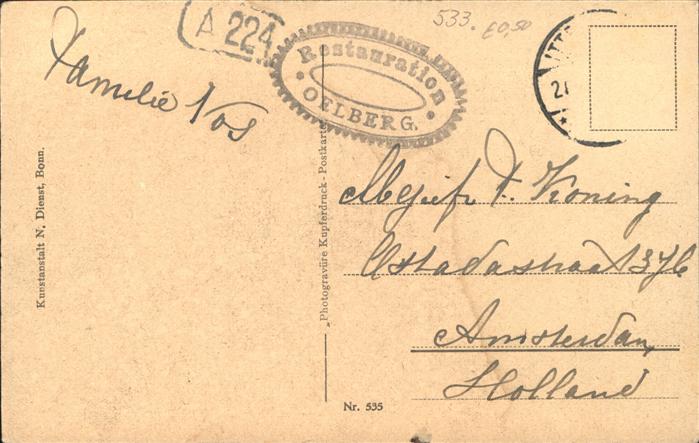 A 224
533. £0,50
Restauration
OELBERG.
21
Familie Vos
Kunstanstalt N. Dienst, Bonn.
„Photogravüre Kupferdruck-Postkarte
Koning
Ostadestraat 
Amsterdam
Holland
Nr. 535